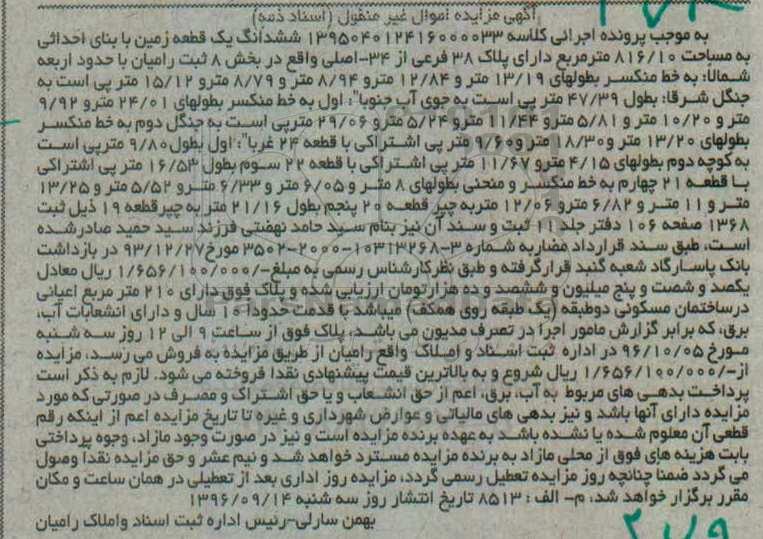 آگهی مزایده اموال غیر منقول (اسناد ذمه)
به موجب پرونده اجرائی کلاسه ۱۳۹۵۰۴۰۱۲۴۱۶۰۰۰۰۳۳ ششدانگ یک قطعه زمین با بنای احداثی
به مساحت ۸۱۶/۱۰ مترمربع دارای پلاک ۳۸ فرعی از ۳۴-اصلی واقع در بخش ۸ ثبت رامیان با حدود اربعه
شمالا: به خط منکسر بطولهای ۱۳/۱۹ متر و ۱۲/۸۴ مترو ۸/۹۴ متر و ۸/۷۹ مترو ۱۵/۱۲ متر پی است به
جنگل شرقا: بطول ۴۷/۳۹ متر پی است به جوی آب جنوبا": اول به خط منکسر بطولهای ۲۴/۰۱ مترو ۹/۹۲
متر و ۱۰/۲۰ متر و ۵/۸۱ مترو ۱۱/۴۴ مترو ۵/۲۴ مترو ۲۹/۰۶ مترپی است به جنگل دوم به خط منکسر
بطولهای ۱۳/۲۰ متر و۱۸/۳۰ متر و۹/۶۰ متر پی اشتراکی با قطعه ۲۴ غربا": اول بطول ۹/۸۰ مترپی است
به کوچه دوم بطولهای ۴/۱۵ مترو ۱۱/۶۷ متر پی اشتراکی با قطعه ۲۲ سوم بطول ۱۶/۵۳ متر پی اشتراکی
با قطعه ۲۱ چهارم به خط منکسر و منحنی بطولهای ۸ متر و ۶/۰۵ متر و ۶/۳۳ مترو ۵/۵۲ متر و ۱۳/۲۵
متر و ۱۱ متر و ۶/۸۲ مترو ۱۲/۰۶ متربه چپر قطعه ۲۰ پنجم بطول ۲۱/۱۶ متر به چپرقطعه ۱۹ ذیل ثبت
۱۳۶۸ صفحه ۱۰۶ دفتر جلد ۱۱ ثبت و سند آن نیز بنام سید حامد نهضتی فرزند سید حمید صادرشده
است، طبق سند قرارداد مضاربه شماره ۳-۱۰۳۱۳۲۶۸-۲۰۰۰-۳۵۰۲ مورخ۹۳/۱۲/۲۷ در بازداشت
بانک پاسارگاد شعبه گنبد قرارگرفته و طبق نظرکارشناس رسمی به مبلغ-/۱/۶۵۶/۱۰۰/۰۰۰ ریال معادل
یکصد و شصت و پنج میلیون و ششصد و ده هزارتومان ارزیابی شده و پلاک فوق دارای ۲۱۰ متر مربع اعیانی
درساختمان مسکونی دوطبقه (یک طبقه روی همکف) میباشد با قدمت حدودا ۱۰ سال و دارای انشعابات آب،
برق، که برابر گزارش مامور اجرا در تصرف مدیون می باشد، پلاک فوق از ساعت ۹ الی ۱۲ روز سه شنبه
مورخ ۹۶/۱۰/۰۵ در اداره ثبت اسناد و املاک واقع رامیان از طریق مزایده به فروش می رسد، مزایده
از-/۱/۶۵۶/۱۰۰/۰۰۰ ریال شروع و به بالاترین قیمت پیشنهادی نقدا فروخته می شود. لازم به ذکر است
پرداخت بدهی های مربوط به آب، برق، اعم از حق انشعاب و یا حق اشتراک و مصرف در صورتی که مورد
مزایده دارای آنها باشد و نیز بدهی های مالیاتی و عوارض شهرداری و غیره تا تاریخ مزایده اعم از اینکه رقم
قطعی آن معلوم شده یا نشده باشد به عهده برنده مزایده است و نیز در صورت وجود مازاد، وجوه پرداختی
بابت هزینه های فوق از محلی مازاد به برنده مزایده مسترد خواهد شد و نیم عشر و حق مزایده نقدا وصول
می گردد ضمنا چنانچه روز مزایده تعطیل رسمی گردد، مزایده روز اداری بعد از تعطیلی در همان ساعت و مکان
مقرر برگزار خواهد شد، م- الف : ۸۵۱۳ تاریخ انتشار روز سه شنبه ۱۳۹۶/۰۹/۱۴
بهمن سارلی-رئیس اداره ثبت اسناد واملاک رامیان
۲۷۹